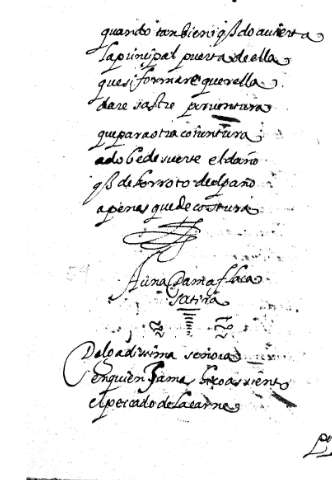 quando tanbien i q̃do auierta
la principal puerta de ella
que si formare querella
dare sastre por uentura
que para otra coiuntura
adobe de suerte el daño
q̃ de forroto de el paño
apenas quede costura
A una Dama flaca
satira
Delgadissima señora
en quien Jamas hiço asiento
el pecado de la carne